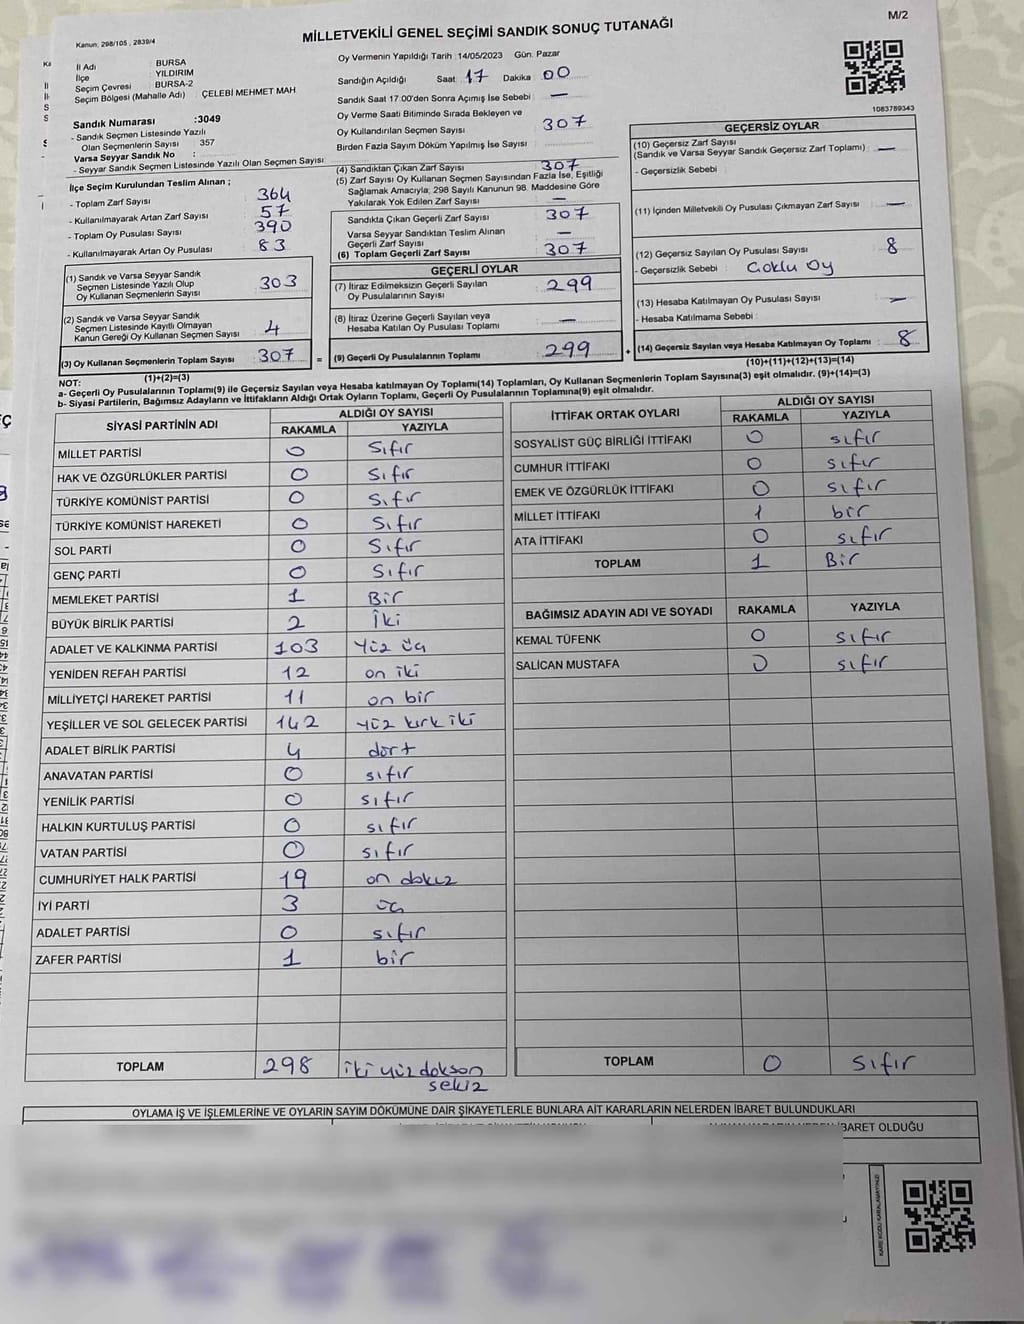 M/2
MİLLETVEKİLİ GENEL SEÇİMİ SANDIK SONUÇ TUTANAĞI
Kanun; 298/105 , 2839/4
İl Adı BURSA
İlçe YILDIRIM
Seçim Çevresi BURSA-2
Seçim Bölgesi (Mahalle Adı) : ÇELEBİ MEHMET MAH
Sandık Numarası :3049
- Sandık Seçmen Listesinde Yazılı
Olan Seçmenlerin Sayısı : 357
Varsa Seyyar Sandık No :
- Seyyar Sandık Seçmen Listesinde Yazılı Olan Seçmen Sayısı :
İlçe Seçim Kurulundan Teslim Alınan ;
- Toplam Zarf Sayısı 364
- Kullanılmayarak Artan Zarf Sayısı 57
- Toplam Oy Pusulası Sayısı 390
- Kullanılmayarak Artan Oy Pusulası 83
(1) Sandık ve Varsa Seyyar Sandık
Seçmen Listesinde Yazılı Olup
Oy Kullanan Seçmenlerin Sayısı 303
(2) Sandık ve Varsa Seyyar Sandık
Seçmen Listesinde Kayıtlı Olmayan
Kanun Gereği Oy Kullanan Seçmen Sayısı 4
(3) Oy Kullanan Seçmenlerin Toplam Sayısı 307 =
(1)+(2)=(3)
Oy Vermenin Yapıldığı Tarih : 14/05/2023 Gün: Pazar
Sandığın Açıldığı Saat : 17 Dakika : 00
Sandık Saat 17:00'den Sonra Açımış İse Sebebi : —
Oy Verme Saati Bitiminde Sırada Bekleyen ve
Oy Kullandırılan Seçmen Sayısı 307
Birden Fazla Sayım Döküm Yapılmış İse Sayısı
(4) Sandıktan Çıkan Zarf Sayısı 307
(5) Zarf Sayısı Oy Kullanan Seçmen Sayısından Fazla İse, Eşitliği
Sağlamak Amacıyla; 298 Sayılı Kanunun 98. Maddesine Göre
Yakılarak Yok Edilen Zarf Sayısı —
Sandıkta Çıkan Geçerli Zarf Sayısı 307
Varsa Seyyar Sandıktan Teslim Alınan
Geçerli Zarf Sayısı —
(6) Toplam Geçerli Zarf Sayısı 307
GEÇERLİ OYLAR
(7) İtiraz Edilmeksizin Geçerli Sayılan
Oy Pusulalarının Sayısı 299
(8) İtiraz Üzerine Geçerli Sayılan veya
Hesaba Katılan Oy Pusulası Toplamı —
(9) Geçerli Oy Pusulalarının Toplamı 299 +
1083789343
GEÇERSİZ OYLAR
(10) Geçersiz Zarf Sayısı
(Sandık ve Varsa Seyyar Sandık Geçersiz Zarf Toplamı) : —
- Geçersizlik Sebebi :
(11) İçinden Milletvekili Oy Pusulası Çıkmayan Zarf Sayısı : —
(12) Geçersiz Sayılan Oy Pusulası Sayısı : 8
- Geçersizlik Sebebi : Çoklu oy
(13) Hesaba Katılmayan Oy Pusulası Sayısı : —
- Hesaba Katılmama Sebebi :
(14) Geçersiz Sayılan veya Hesaba Katılmayan Oy Toplamı : 8
(10)+(11)+(12)+(13)=(14)
NOT:
a- Geçerli Oy Pusulalarının Toplamı(9) ile Geçersiz Sayılan veya Hesaba katılmayan Oy Toplamı(14) Toplamları, Oy Kullanan Seçmenlerin Toplam Sayısına(3) eşit olmalıdır. (9)+(14)=(3)
b- Siyasi Partilerin, Bağımsız Adayların ve İttifakların Aldığı Ortak Oyların Toplamı, Geçerli Oy Pusulalarının Toplamına(9) eşit olmalıdır.
SİYASİ PARTİNİN ADI ALDIĞI OY SAYISI
RAKAMLA YAZIYLA
MİLLET PARTİSİ 0 Sıfır
HAK VE ÖZGÜRLÜKLER PARTİSİ 0 Sıfır
TÜRKİYE KOMÜNİST PARTİSİ 0 Sıfır
TÜRKİYE KOMÜNİST HAREKETİ 0 Sıfır
SOL PARTİ 0 Sıfır
GENÇ PARTİ 0 Sıfır
MEMLEKET PARTİSİ 1 Bir
BÜYÜK BİRLİK PARTİSİ 2 İki
ADALET VE KALKINMA PARTİSİ 103 Yüz üç
YENİDEN REFAH PARTİSİ 12 on iki
MİLLİYETÇİ HAREKET PARTİSİ 11 on bir
YEŞİLLER VE SOL GELECEK PARTİSİ 142 yüz kırk iki
ADALET BİRLİK PARTİSİ 4 dört
ANAVATAN PARTİSİ 0 sıfır
YENİLİK PARTİSİ 0 sıfır
HALKIN KURTULUŞ PARTİSİ 0 sıfır
VATAN PARTİSİ 0 sıfır
CUMHURİYET HALK PARTİSİ 19 on dokuz
İYİ PARTİ 3 üç
ADALET PARTİSİ 0 sıfır
ZAFER PARTİSİ 1 bir
TOPLAM 298 iki yüz doksan
sekiz
İTTİFAK ORTAK OYLARI ALDIĞI OY SAYISI
RAKAMLA YAZIYLA
SOSYALİST GÜÇ BİRLİĞİ İTTİFAKI 0 sıfır
CUMHUR İTTİFAKI 0 sıfır
EMEK VE ÖZGÜRLÜK İTTİFAKI 0 sıfır
MİLLET İTTİFAKI 1 bir
ATA İTTİFAKI 0 sıfır
TOPLAM 1 Bir
BAĞIMSIZ ADAYIN ADI VE SOYADI RAKAMLA YAZIYLA
KEMAL TÜFENK 0 sıfır
SALİCAN MUSTAFA 0 sıfır
TOPLAM 0 Sıfır
OYLAMA İŞ VE İŞLEMLERİNE VE OYLARIN SAYIM DÖKÜMÜNE DAİR ŞİKAYETLERLE BUNLARA AİT KARARLARIN NELERDEN İBARET BULUNDUKLARI
İBARET OLDUĞU
KARE KODU KARALAMAYINIZ!